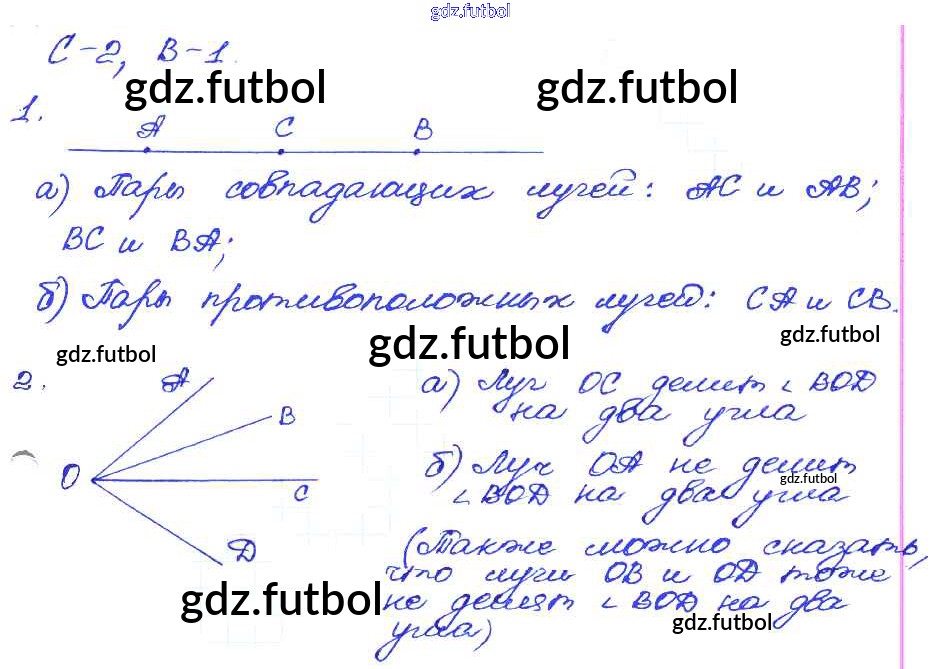 gdz.futbol
С-2, В-1.
gdz.futbol gdz.futbol
1.
А С В
а) Пары совпадающих лучей: АС и АВ;
ВС и ВА;
б) Пары противоположных лучей: СА и СВ.
gdz.futbol gdz.futbol gdz.futbol
2.
А
В
О
С
D
а) Луч ОС делит ∠ BOD
на два угла
б) Луч ОА не делит
gdz.futbol
∠ BOD на два угла
(Также можно сказать,
что лучи ОВ и OD тоже
не делят ∠ BOD на два
угла)
gdz.futbol gdz.futbol